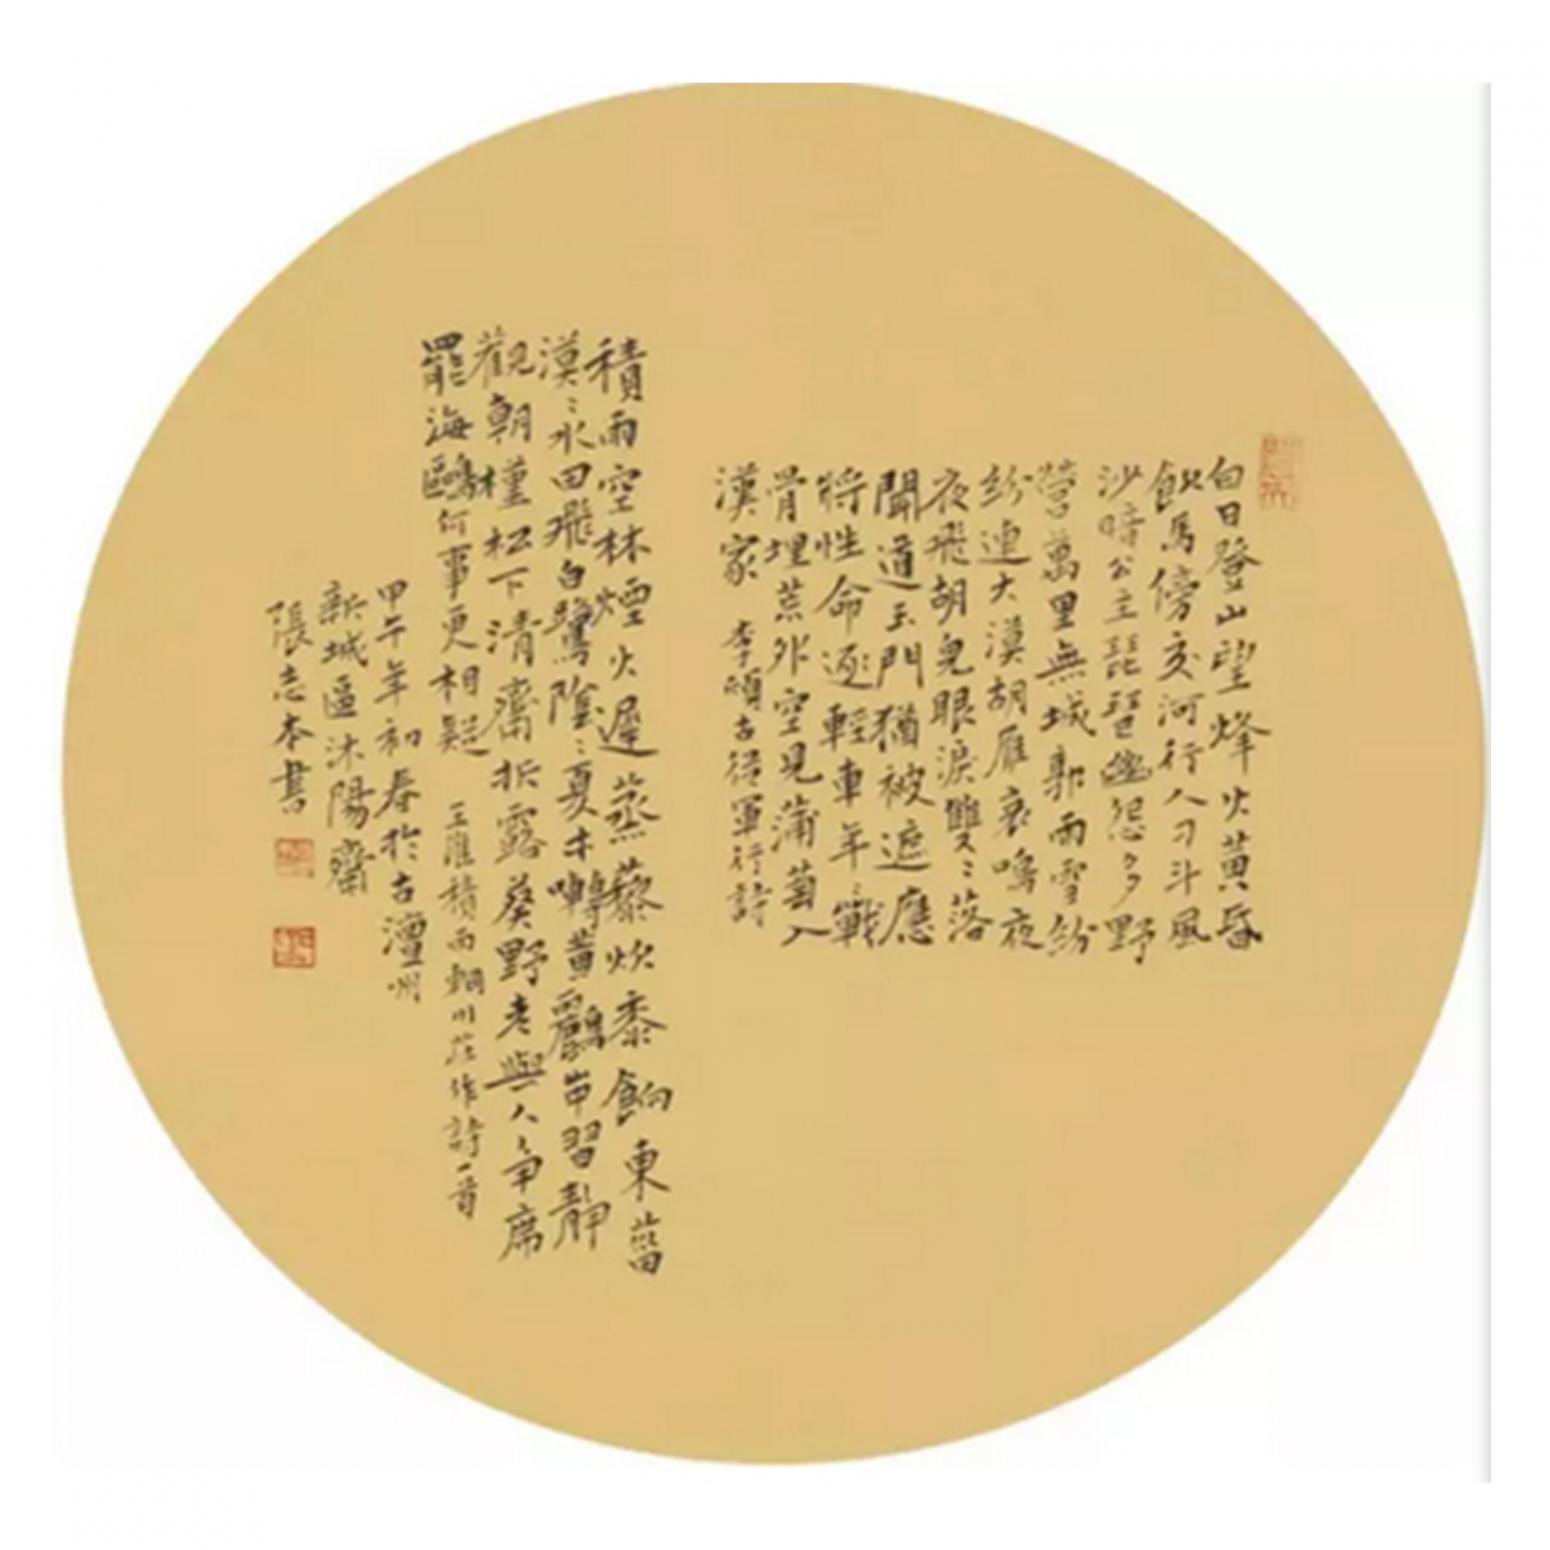 白日登山望烽火黃昏
飲馬傍交河行人刁斗風
沙暗公主琵琶幽怨多野
營萬里無城郭雨雪紛
紛連大漠胡雁哀鳴夜
夜飛胡兒眼淚雙〻落
聞道玉門猶被遮應
將性命逐輕車年〻戰
骨埋荒外空見蒲萄入
漢家 李頎古從軍行詩
積雨空林煙火遲蒸藜炊黍餉東菑
漠〻水田飛白鷺陰〻夏木囀黃鸝山中習靜
觀朝槿松下清齋折露葵野老與人爭席
罷海鷗何事更相疑 王維積雨輞川莊作詩一首
甲午年初春於古澶州
新城區沐陽齋
張志本書